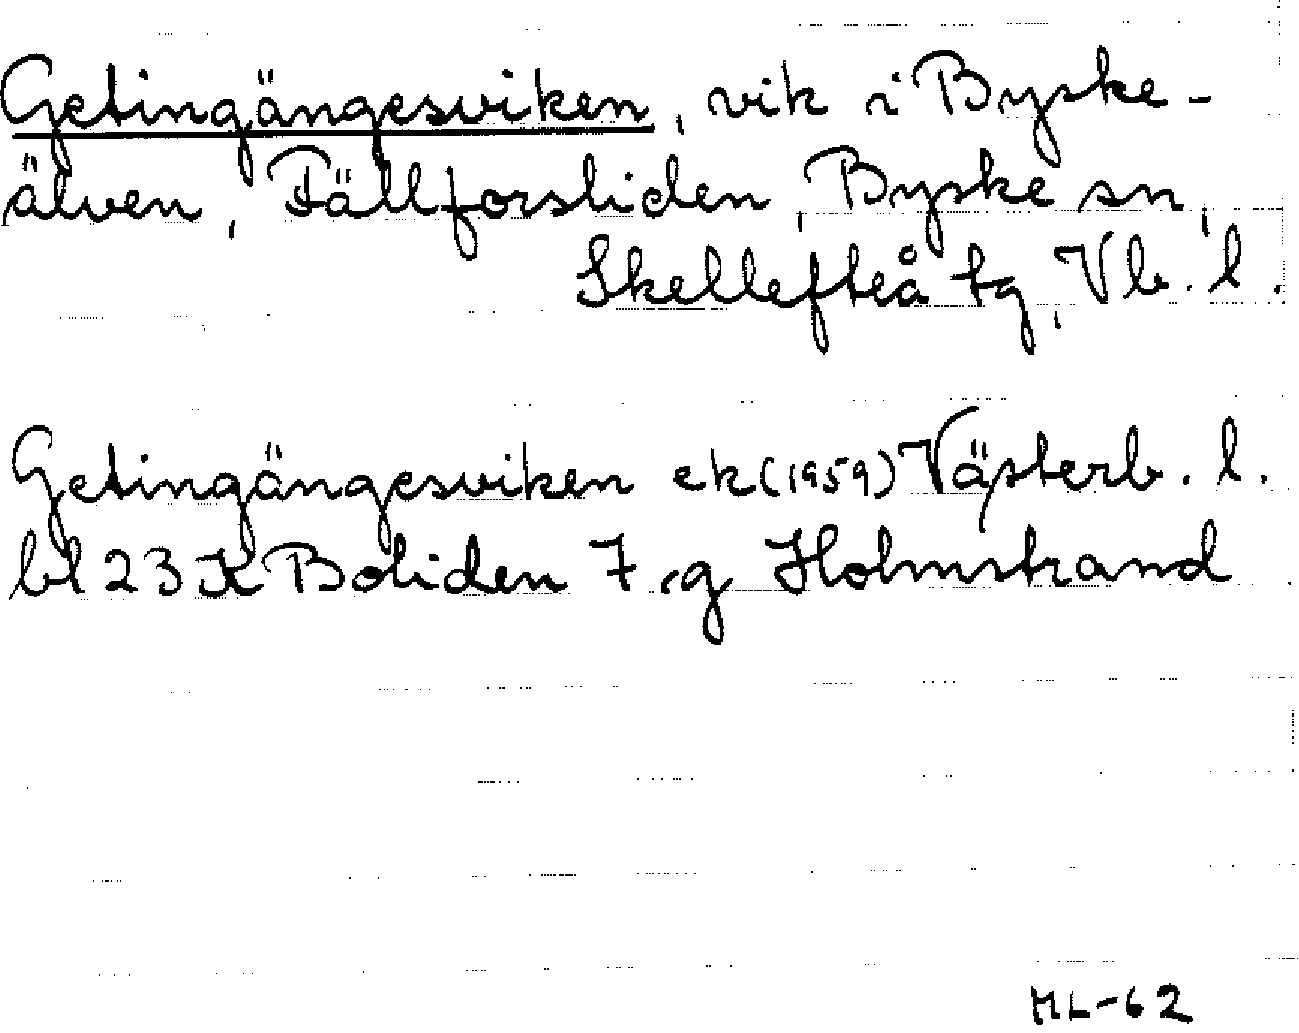 Getingängesviken, vik i Byske-
älven, Fällforsliden, Byske sn,
Skellefteå tg, Vb. l.
Getingängesviken ek (1959) Västerb. l.
bl 23 K Boliden 7.g Holmstrand
ML-62